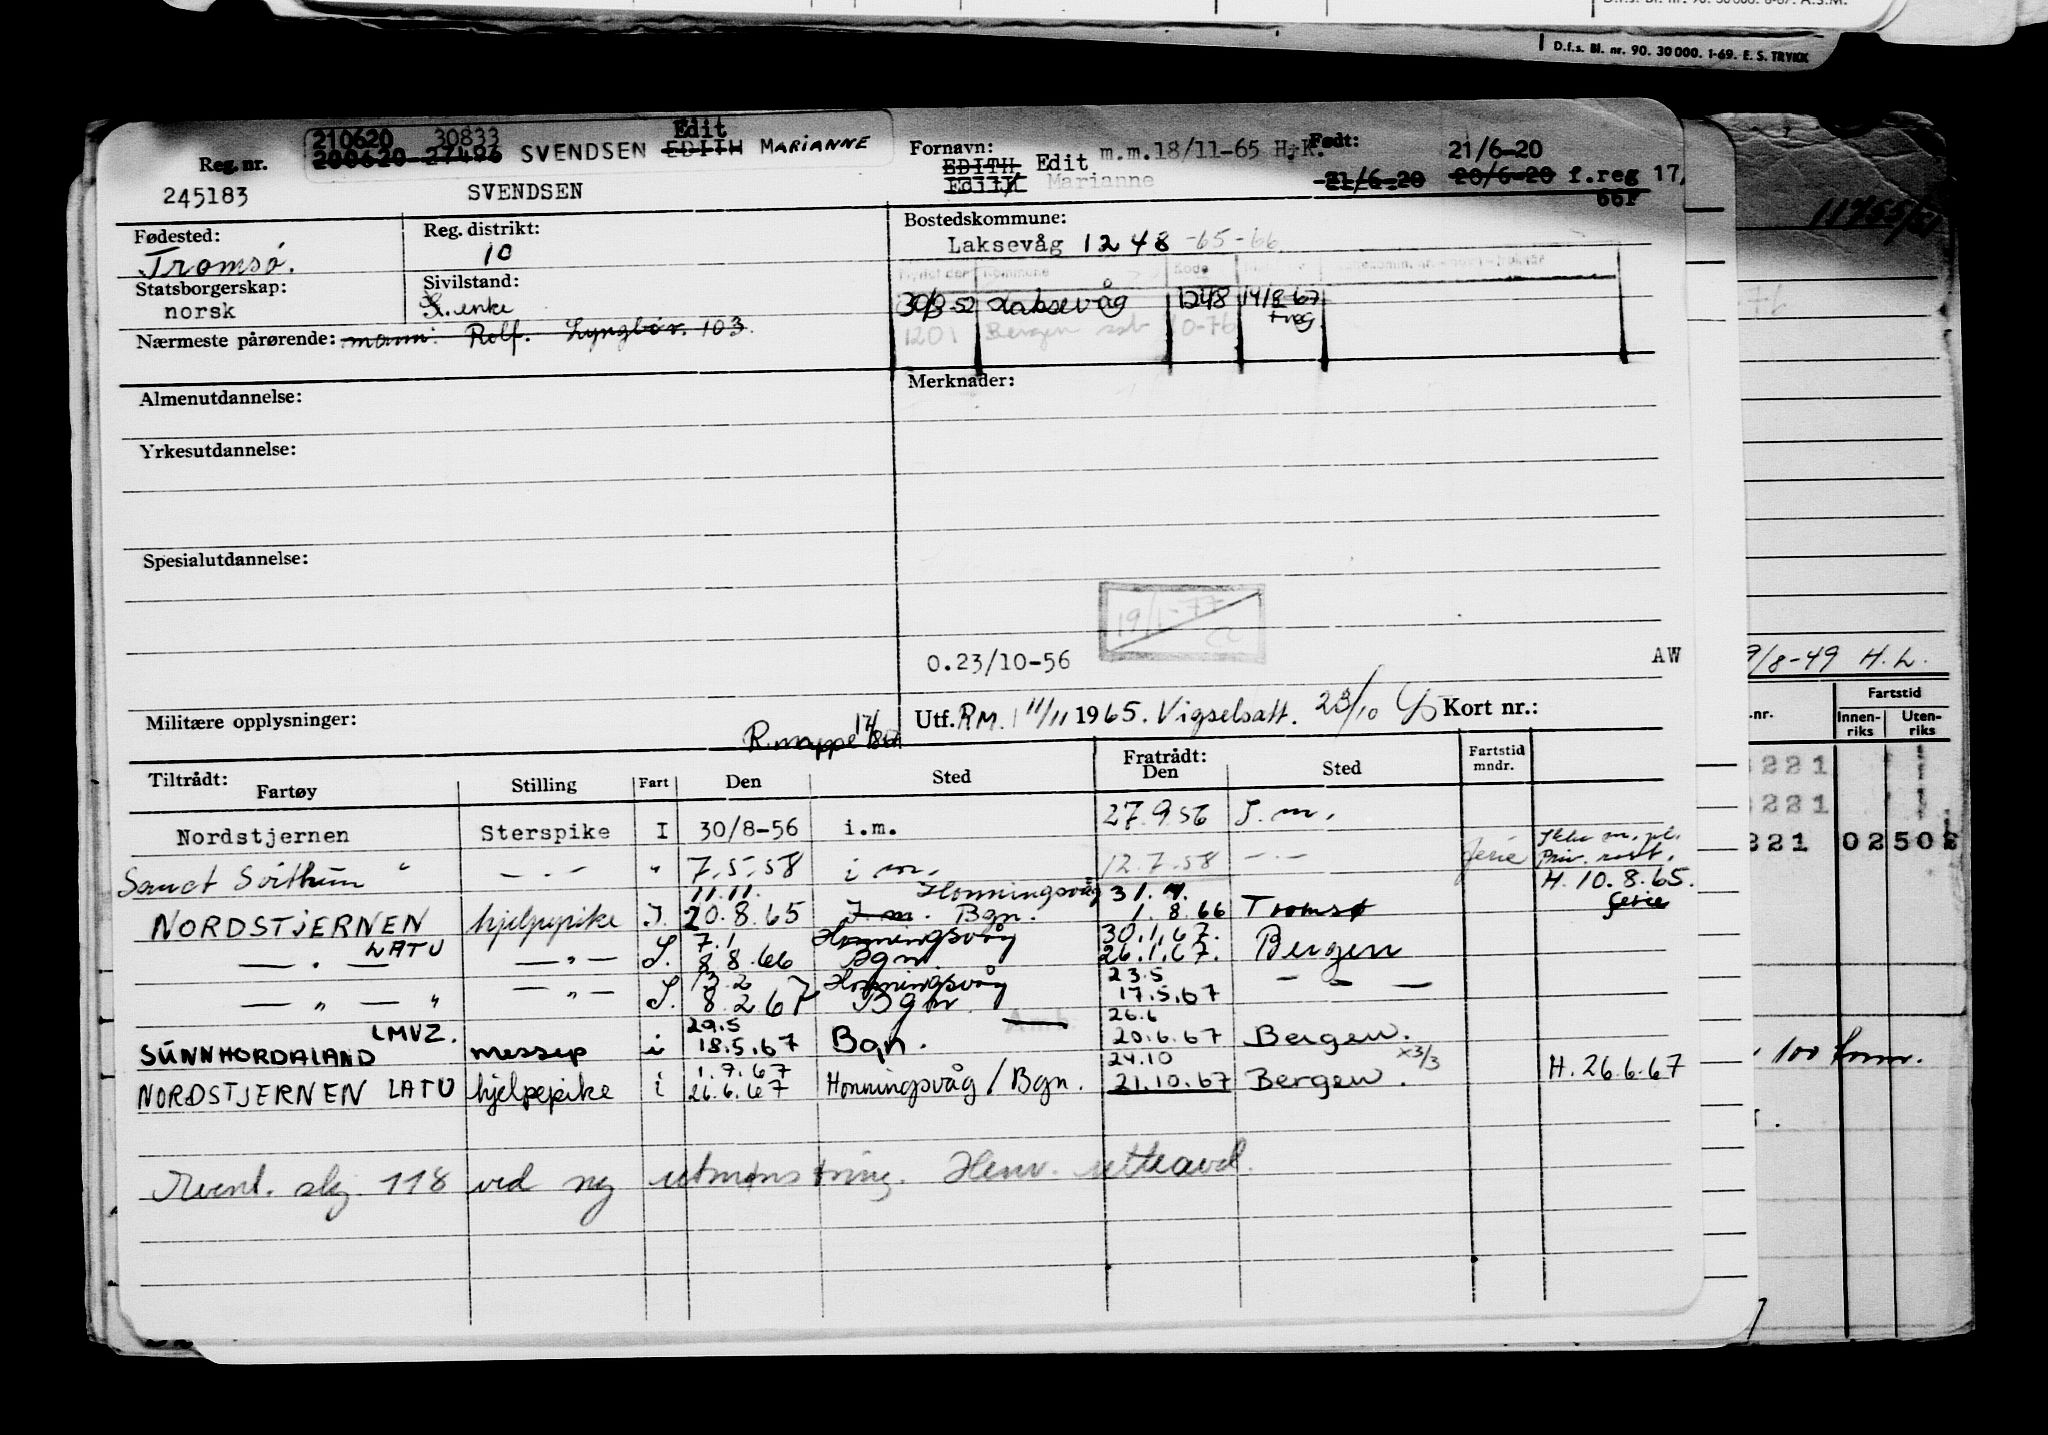 D.f.s. Bl. nr. 90. 30 000. 6-67. A.S.M.
D.f.s. Bl. nr. 90. 30 000. 1-69. E. S. TRYKK
210620 30833 Edit
Reg. nr. 200620-27496 SVENDSEN EDITH MARIANNE
245183 SVENDSEN
Fornavn: EDITH Edit m.m.18/11-65 H.K. Født: 21/6-20
Edith Marianne 21/6-20 20/6-20 f.reg 17,
66F
Fødested: Reg. distrikt: Bostedskommune:
Tromsø. 10 Laksevåg 1248 -65-66
Statsborgerskap: Sivilstand:
norsk enke
30/9-52 Laksevåg 1248 14/8-67
1201 Bergen 0-76
Nærmeste pårørende: mann: Rolf. Lyngbøv. 103.
Almenutdannelse: Merknader:
Yrkesutdannelse:
Spesialutdannelse:
19/1-77
0.23/10-56 AW
9/8-49 H.L.
Militære opplysninger: R.mappe 17/ Utf. RM. 11/11 1965. Vigselsatt. 23/10 Kort nr.:
Tiltrådt: Fartøy Stilling Fart Den Sted Fratrådt: Den Sted Fartstid mndr.
.nr. Fartstid Innen-riks Uten-riks
Nordstjernen Sterspike I 30/8-56 i.m. 27.9.56 I.m.
221
221
221 02502
Sanct Svithun " — . — " 7.5.58 i m. 12.7.58 — . — ferie
H. 10.8.65.
ferie
11.11. Honningsvåg 31.
NORDSTJERNEN hjelpepike I. 20.8.65 I.m. Bgn. 1.8.66 Tromsø
LATU 7.1 Honningsvåg 30.1.67.
— " — — " — I. 8.8.66 Bgn 26.1.67. Bergen
13.2 Honningsvåg 23.5
— " — " — " — I. 8.2.67 Bgn. 17.5.67 — - —
LMVZ. 29.5 26.6
SUNNHORDALAND messep i 18.5.67 Bgn. 20.6.67 Bergen.
1.7.67 24.10 x3/3
NORDSTJERNEN LATU hjelpepike i 26.6.67 Honningsvåg / Bgn. 21.10.67 Bergen. H. 26.6.67
100
skj. 118 ved ny utmønstring. Henv. rettsavd.